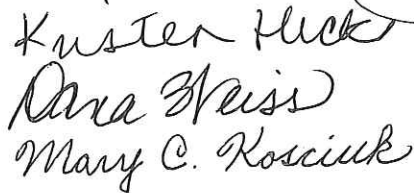 Kristen Hicks
Dana Weiss
Mary C. Kosciuk